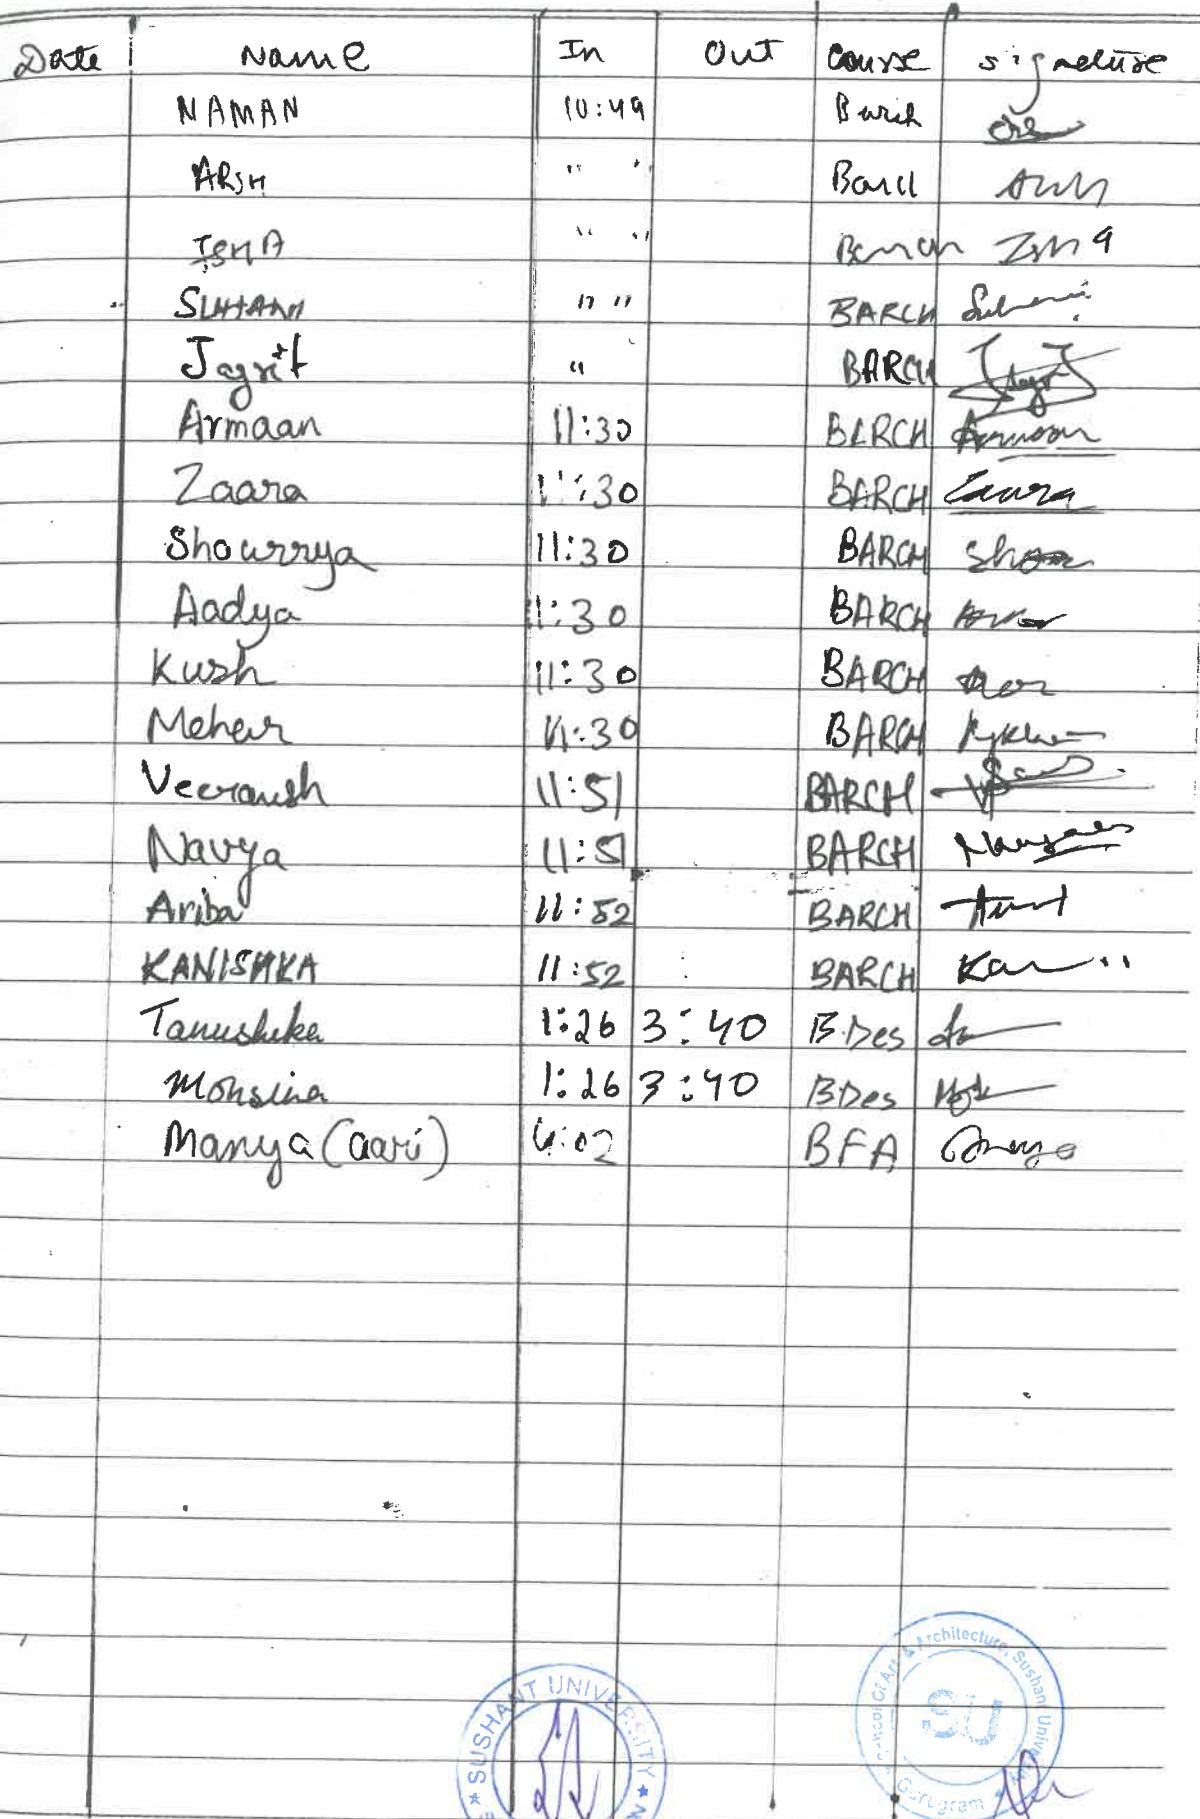 Date Name In Out Course Signature
NAMAN 10:49 Barch
ARSH " " Barch Arsh
ISHA " " Barch Isha
SUHANI " " BARCH Suhani
Jagrit " BARCH Jagrit
Armaan 11:30 BARCH Armaan
Zaara 11:30 BARCH Zaara
Shourrya 11:30 BARCH
Aadya 11:30 BARCH
Kush 11:30 BARCH
Meher 11:30 BARCH
Veeransh 11:51 BARCH
Navya 11:51 BARCH
Ariba 11:52 BARCH
KANISHKA 11:52 BARCH
Tanushka 1:26 3:40 B.Des
Mohsina 1:26 3:40 BDes
Manya (aari) 4:02 BFA
School Of Art & Architecture, Sushant University
SU
Gurugram
SUSHANT UNIVERSITY